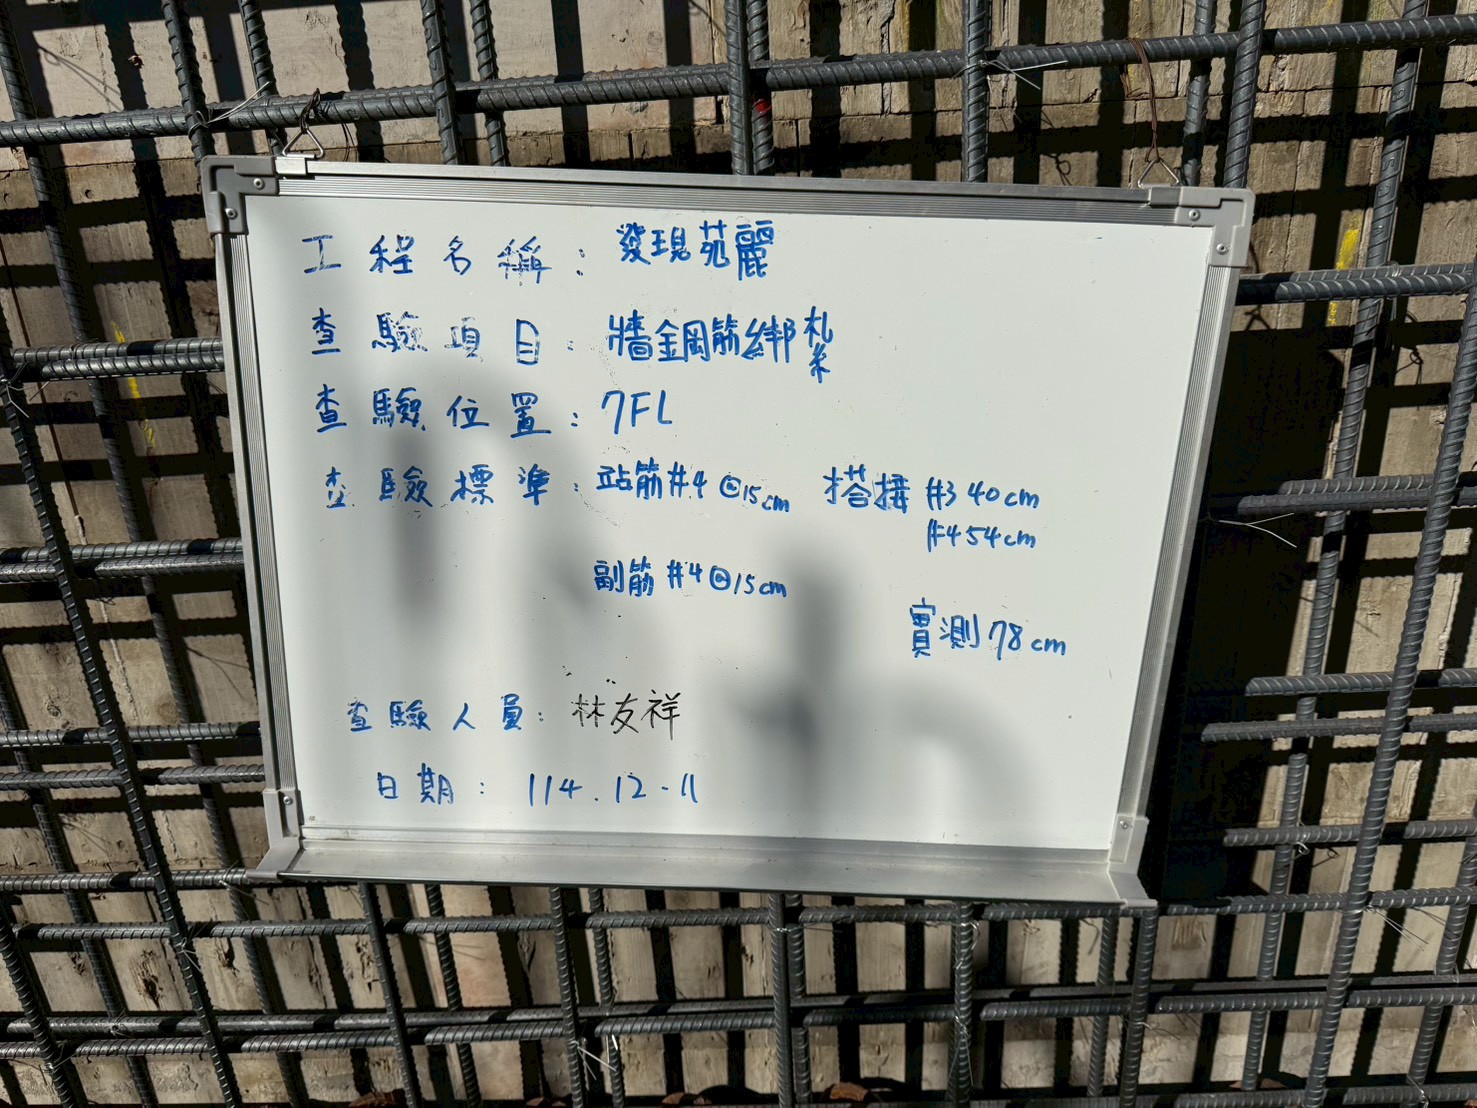 工程名稱：發現苑麗
查驗項目：牆鋼筋綁紮
查驗位置：7FL
查驗標準：站筋#4@15cm 搭接#3 40cm
#4 54cm
副筋#4@15cm
實測78cm
查驗人員：林友祥
日期：114.12.11